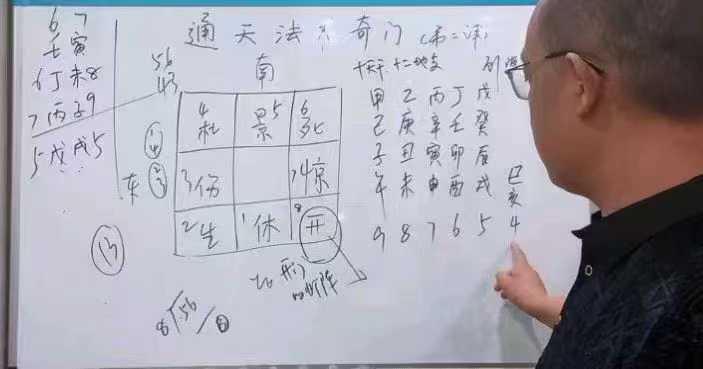 通天法 奇门（第二讲）
6 7
壬 寅
6 丁 未 8
7 丙 子 9
5 戊 戌 5
56
43
南
东
4 杜 景 5 6 死
3 伤 7 惊
2 生 1 休 8 开
十天干 十二地支
甲 乙 丙 丁 戊
己 庚 辛 壬 癸
子 丑 寅 卯 辰 巳
午 未 申 酉 戌 亥
9 8 7 6 5 4
13
开门
8 56